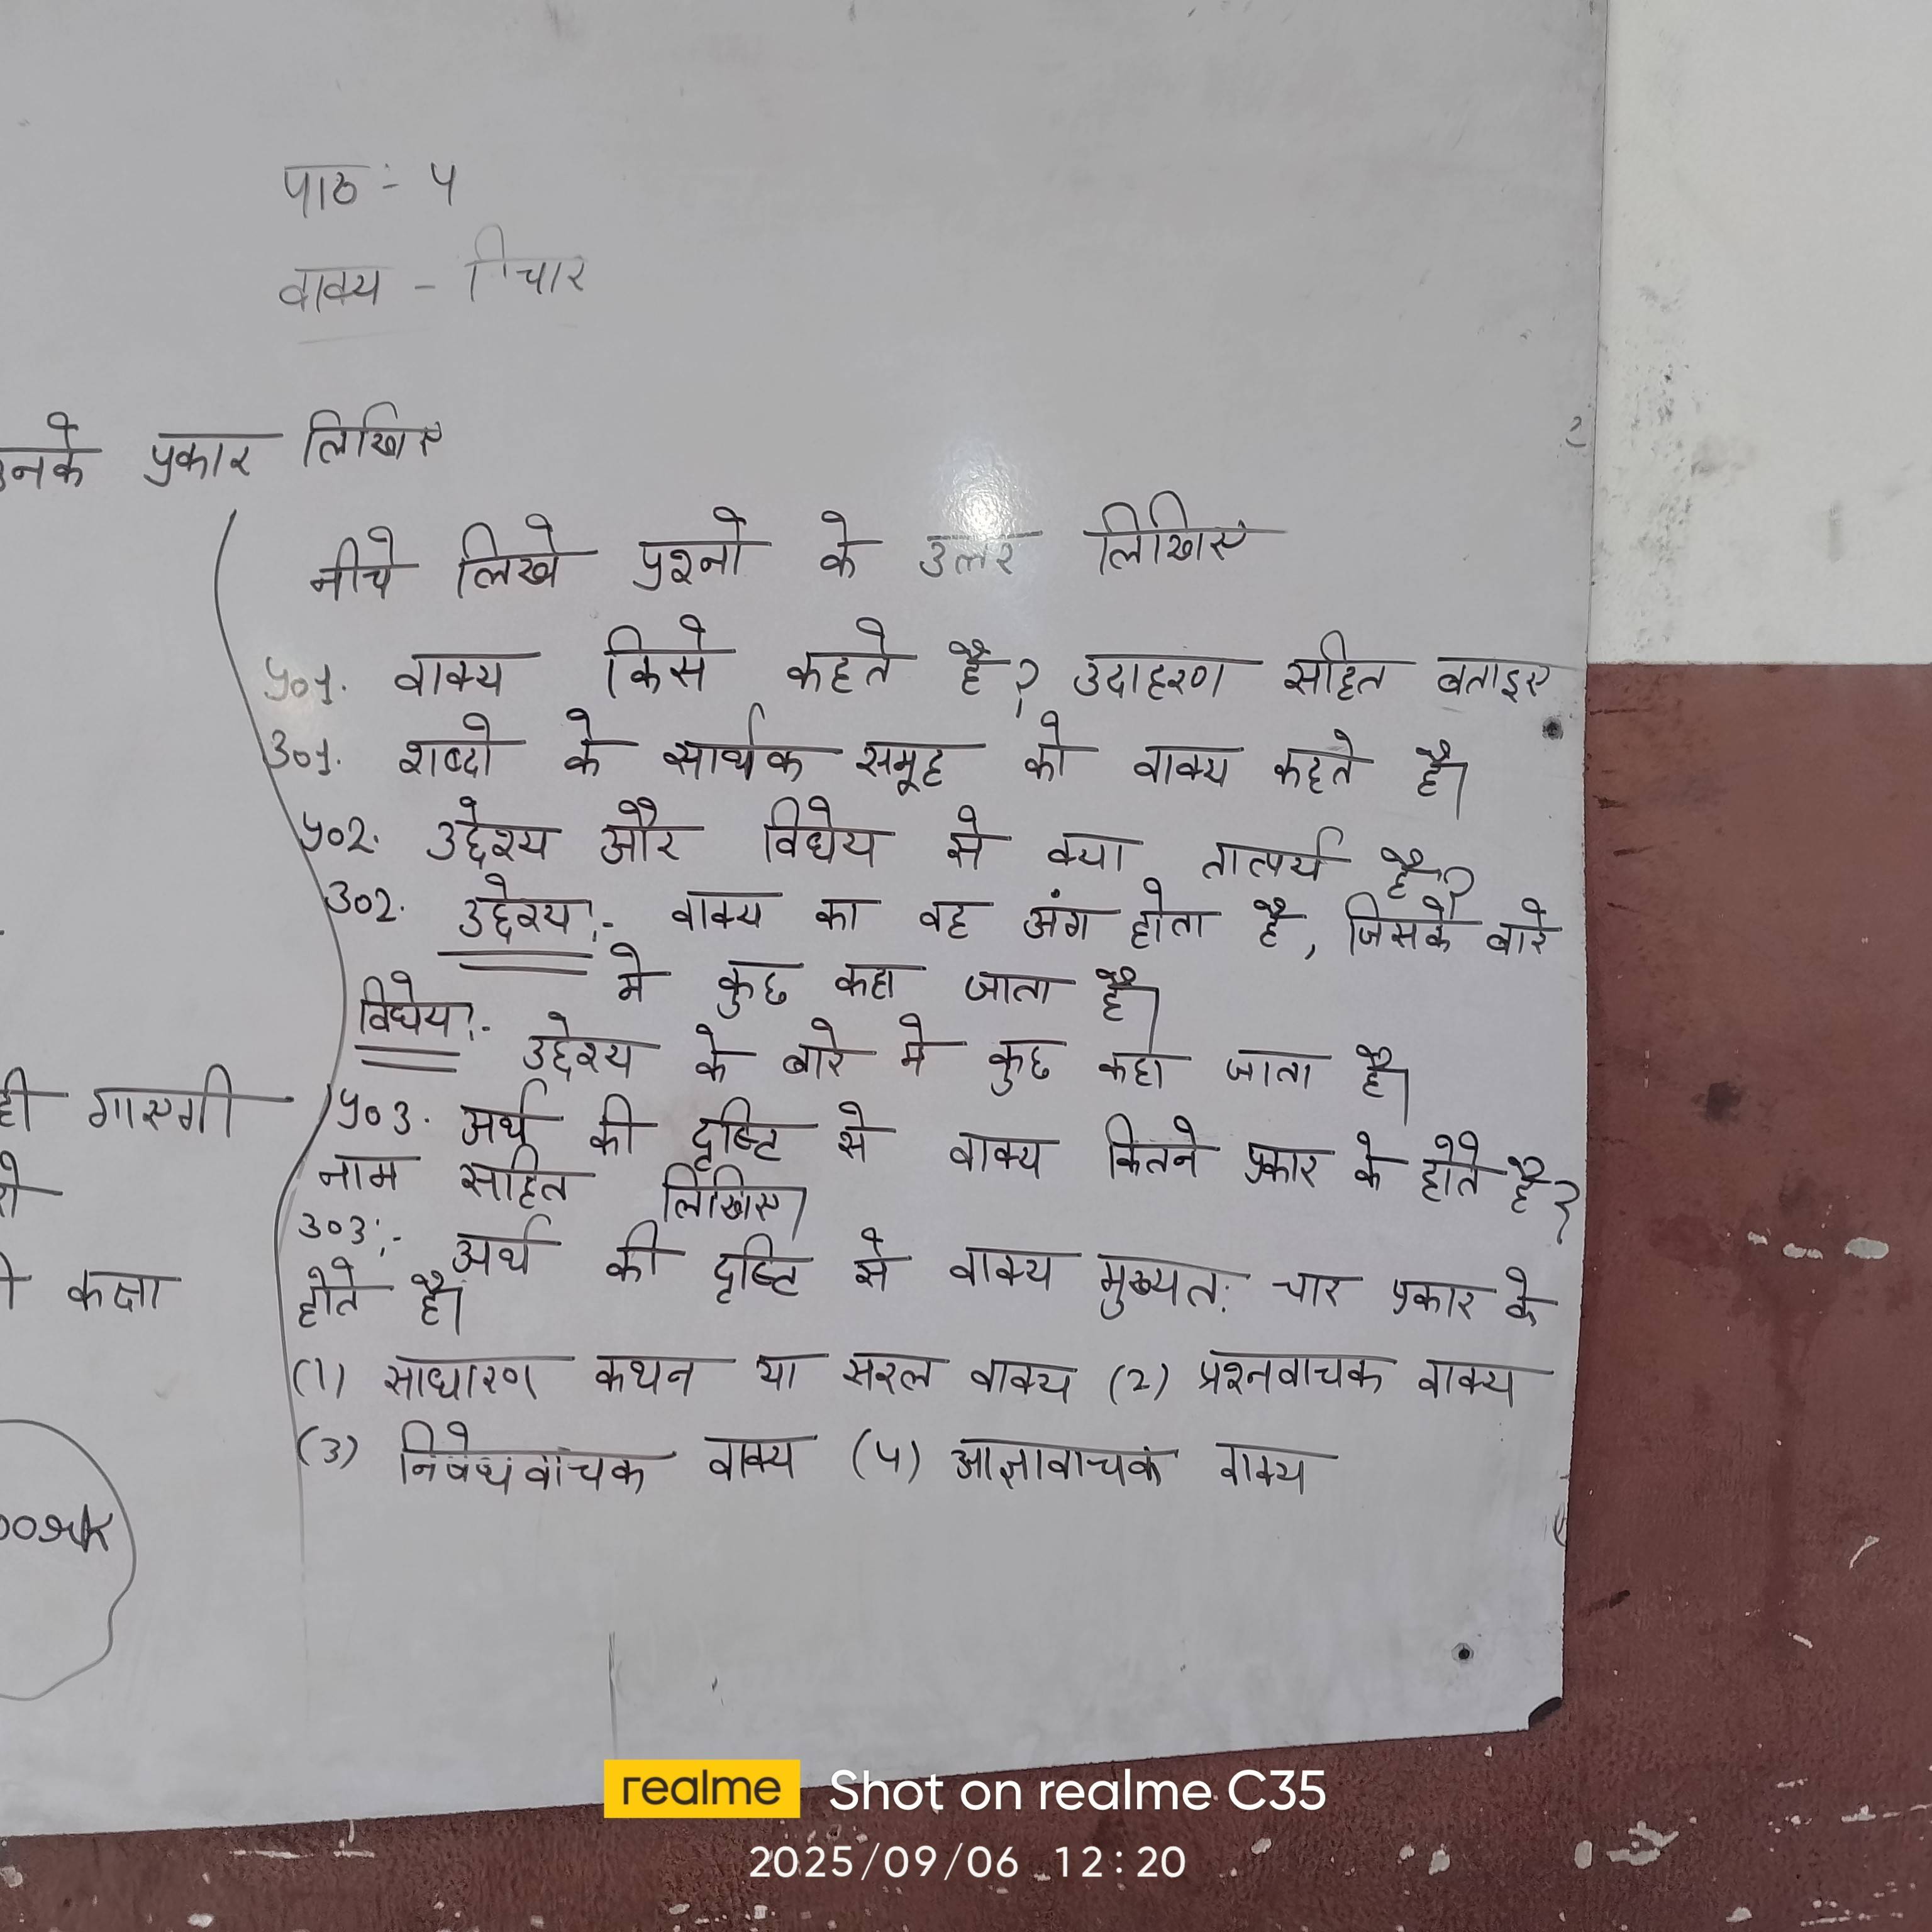 पाठ :- ५
वाक्य - विचार
उनके प्रकार लिखिए
नीचे लिखे प्रश्नो के उत्तर लिखिए
प्र०१. वाक्य किसे कहते है? उदाहरण सहित बताइए
उ०१. शब्दो के सार्थक समूह को वाक्य कहते है।
प्र०२. उद्देश्य और विधेय से क्या तात्पर्य है?
उ०२. उद्देश्य:- वाक्य का वह अंग होता है, जिसके बारे
मे कुछ कहा जाता है।
विधेय:- उद्देश्य के बारे मे कुछ कहा जाता है।
प्र०३. अर्थ की दृष्टि से वाक्य कितने प्रकार के होते है?
नाम सहित लिखिए।
उ०३:- अर्थ की दृष्टि से वाक्य मुख्यत: चार प्रकार के
होते है।
(1) साधारण कथन या सरल वाक्य (2) प्रश्नवाचक वाक्य
(3) निषेधवाचक वाक्य (4) आज्ञावाचक वाक्य
ही गाएगी
कक्षा
realme Shot on realme C35
2025/09/06 12:20